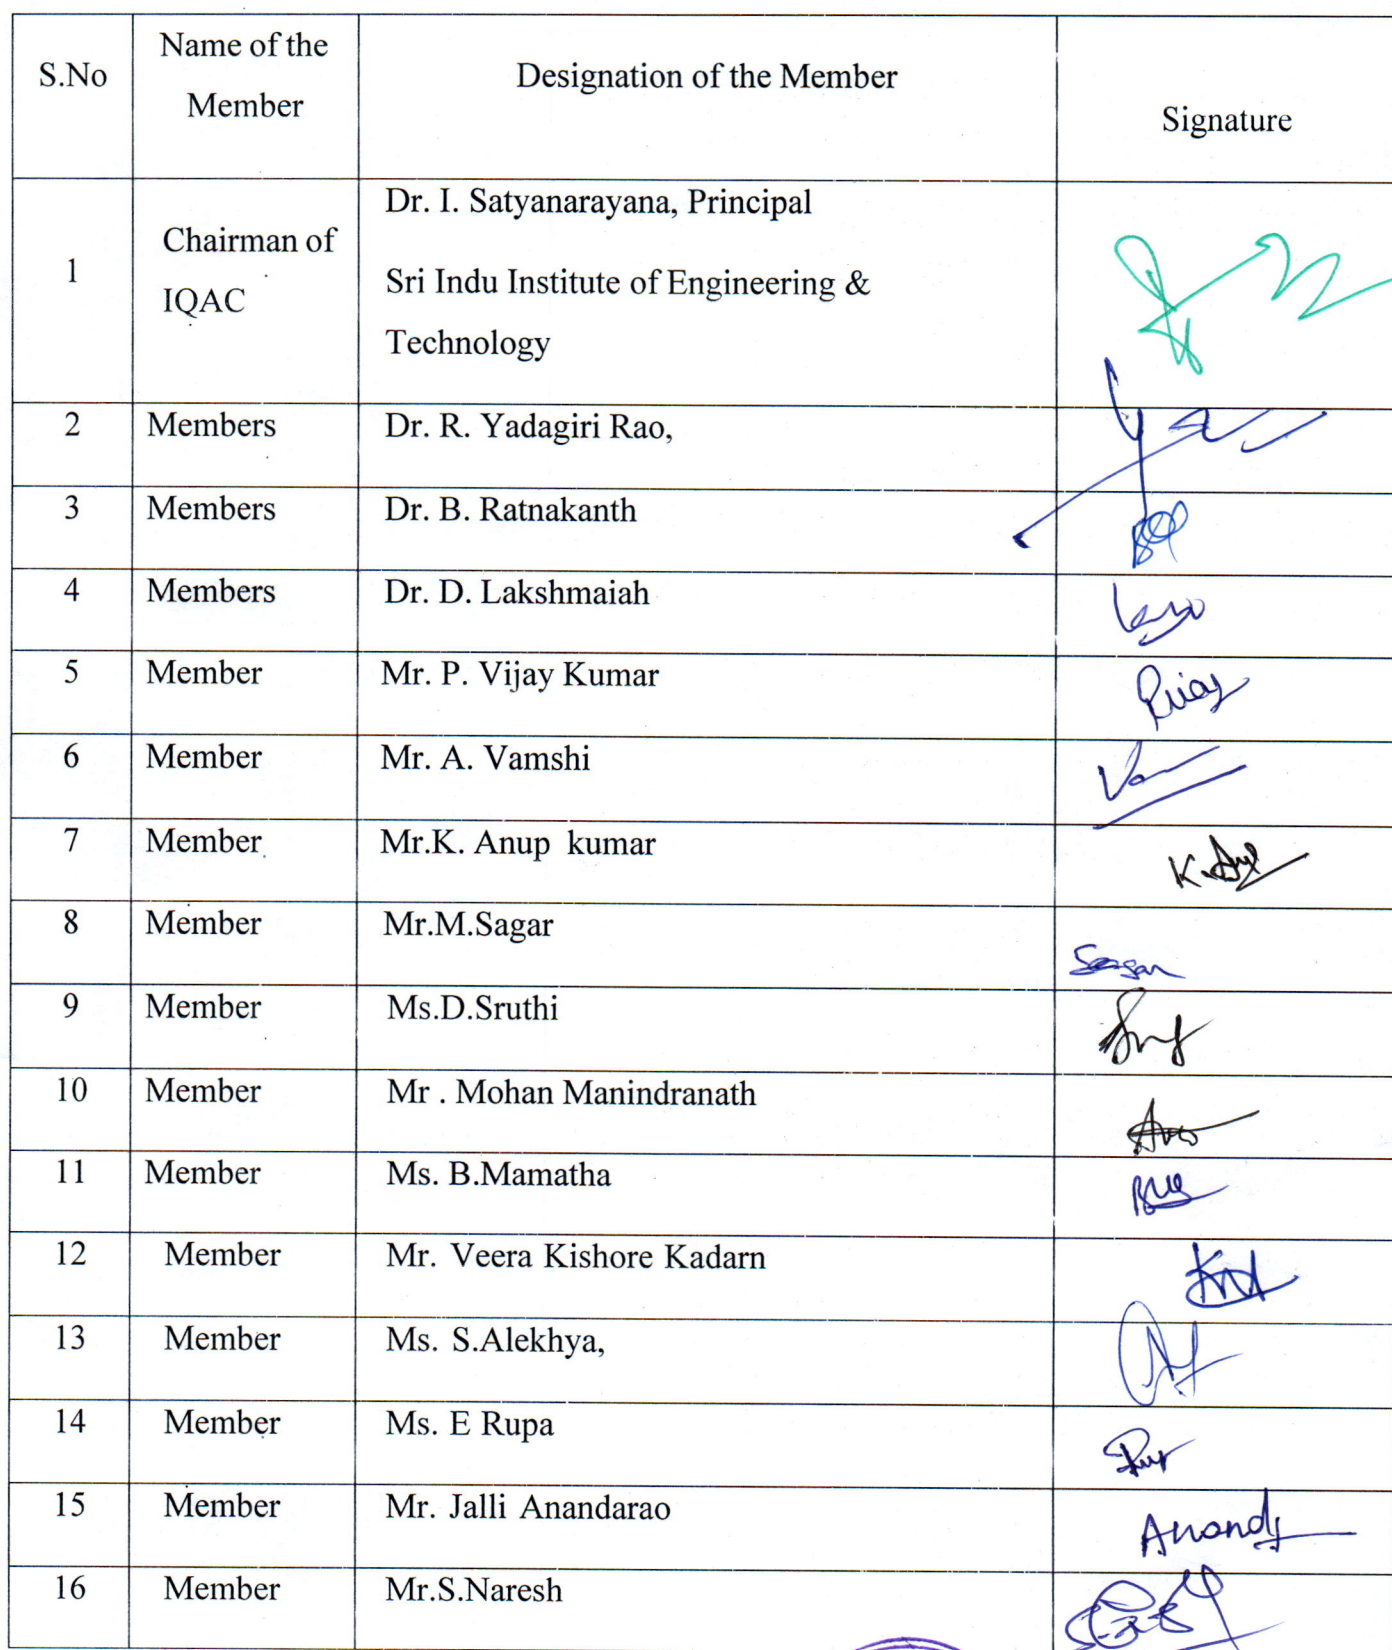 S.No Name of the Member Designation of the Member Signature
1 Chairman of IQAC Dr. I. Satyanarayana, Principal
Sri Indu Institute of Engineering &
Technology
2 Members Dr. R. Yadagiri Rao,
3 Members Dr. B. Ratnakanth
4 Members Dr. D. Lakshmaiah
5 Member Mr. P. Vijay Kumar
6 Member Mr. A. Vamshi
7 Member Mr.K. Anup kumar
8 Member Mr.M.Sagar Sagar
9 Member Ms.D.Sruthi
10 Member Mr . Mohan Manindranath
11 Member Ms. B.Mamatha
12 Member Mr. Veera Kishore Kadarn
13 Member Ms. S.Alekhya,
14 Member Ms. E Rupa
15 Member Mr. Jalli Anandarao Anand
16 Member Mr.S.Naresh